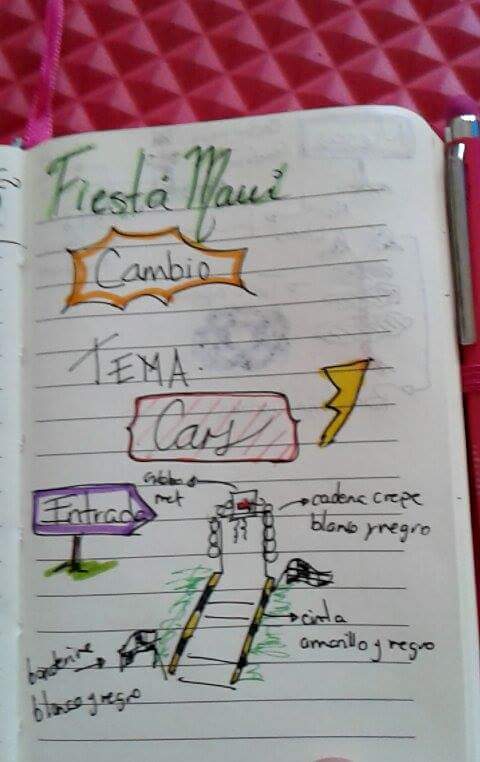 Fiesta Maui
Cambio
TEMA.
Cars
Entrada
cadena crepe
blanco y negro
cinta
amarillo y negro
blanco y negro